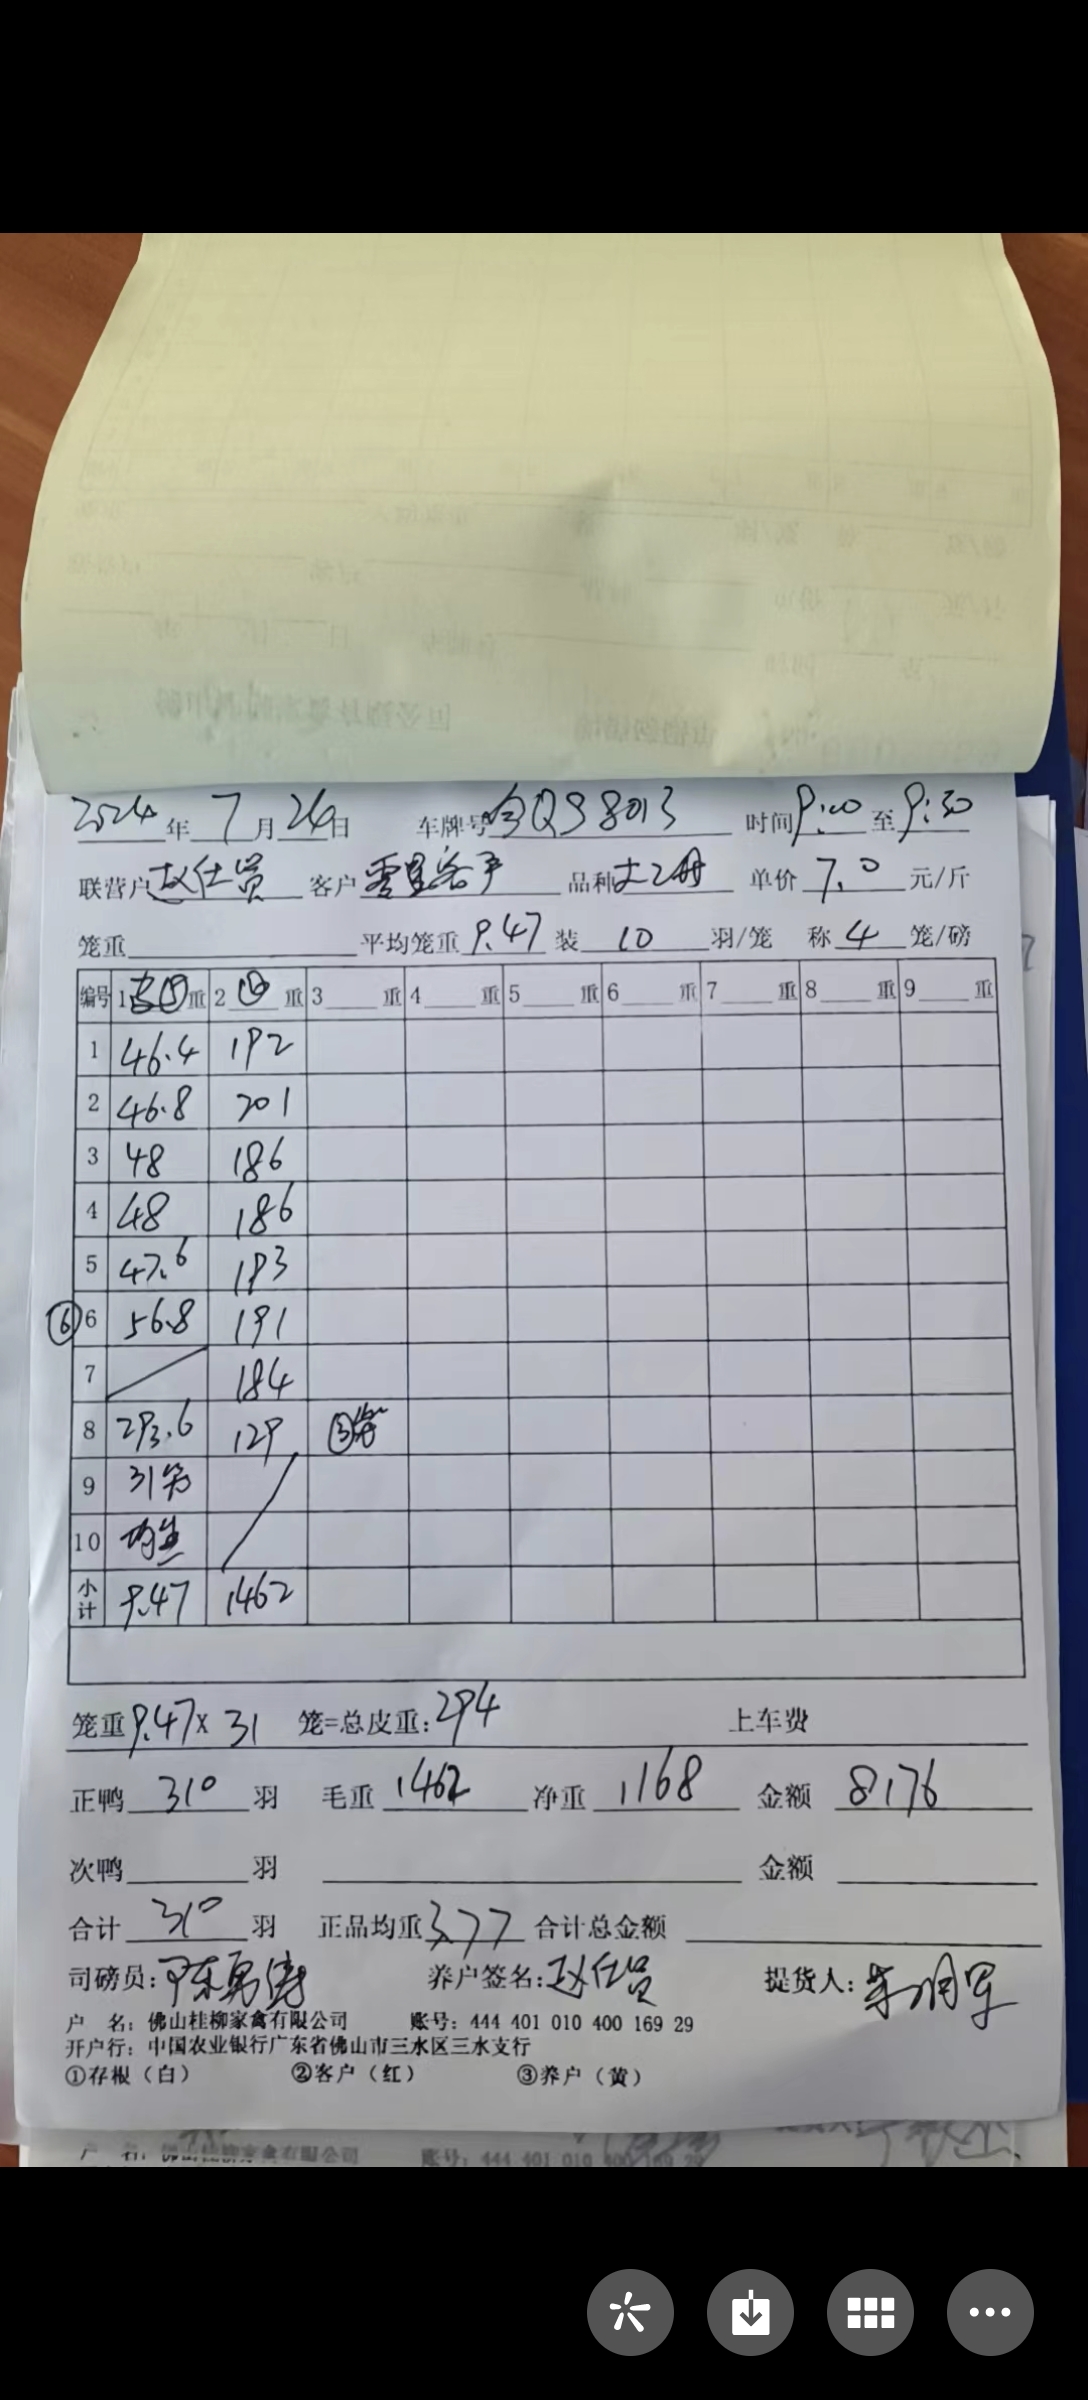 2024年7月26日 车牌号粤QS8013 时间9:00至9:30
联营户赵仕员 客户零星客户 品种 单价7.0元/斤
笼重 平均笼重9.47 装10羽/笼 称4笼/磅
编号 1 ⑤重 2 ④重 3 重 4 重 5 重 6 重 7 重 8 重 9 重
1 46.4 192
2 46.8 201
3 48 186
4 48 186
5 47.6 193
⑥ 6 56.8 191
7 184
8 293.6 129 ③笼
9 31笼
10 均重
小计 9.47 1462
笼重9.47x31笼=总皮重:294 上车费
正鸭310羽 毛重1462 净重1168 金额8176
次鸭 羽 金额
合计310羽 正品均重3.77 合计总金额
司磅员: 养户签名:赵仕员 提货人:
户 名:佛山桂柳家禽有限公司 账号:444 401 010 400 169 29
开户行:中国农业银行广东省佛山市三水区三水支行
①存根(白) ②客户(红) ③养户(黄)
户 名:佛山桂柳家禽有限公司 账号:444 401 010 400 169 29